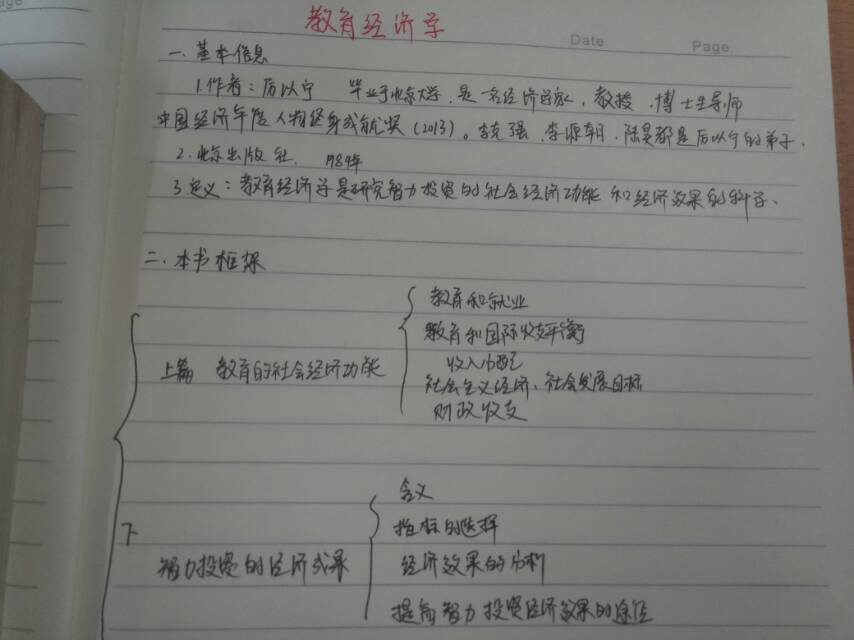 教育经济学
Date
Page
一、基本信息
1.作者：厉以宁 毕业于北京大学，是一名经济学家，教授，博士生导师
中国经济年度人物终身成就奖（2013）。李克强、李源朝、陆昊都是厉以宁的弟子.
2.北京出版社. 1984年
3.定义：教育经济学是研究智力投资的社会经济功能和经济效果的科学、
二、本书框架
教育和就业
教育和国际收支平衡
收入分配
上篇 教育的社会经济功能
社会主义经济、社会发展目标
财政收支
含义
指标的选择
下
智力投资的经济成果
经济效果的分析
提高智力投资经济效果的途径